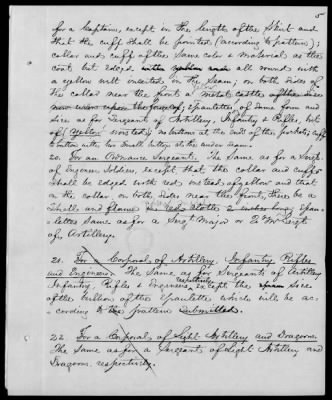 5
for a Captain, except in the length of the Skirt and
that the cuff shall be pointed (according to pattern);
collar and cuffs of the same color & material as the
coat but edged all round with
a yellow welt inserted in the seam; on both sides of
the collar near the front a metal castle of the size
now worn upon the forage; epaulettes of same form and
size as for Sergeant of Artillery, Infantry & Rifles, but
of yellow worsted; no buttons at the ends of the pockets; cuff
to button with two small buttons at the under seam.
20. For an Ordnance Sergeant. The Same as for a Sergt.
of Engineer Soldiers, except that the collar and cuffs
Shall be edged with red instead of yellow and that
on the collar, on both sides near the front, there be a
Shell and flame in red 2 inches long than
a letter Same as for a Sergt Major or Qr Mr Sergt
of Artillery.
21. For a Corporal of Artillery, Infantry, Rifles
and Engineers. The Same as for Sergeants of Artillery
Infantry, Rifles & Engineers respectively except the size
of the bullion of the epaulette which will be ac-
cording to the pattern submitted.
22. For a Corporal of Light Artillery and Dragoons.
The Same as for a Sergeant of Light Artillery and
Dragoons respectively.